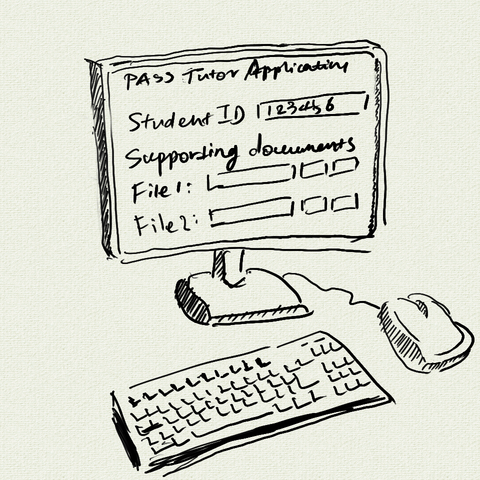 PASS Tutor Application
Student ID 123456
Supporting documents
File 1:
File 2: